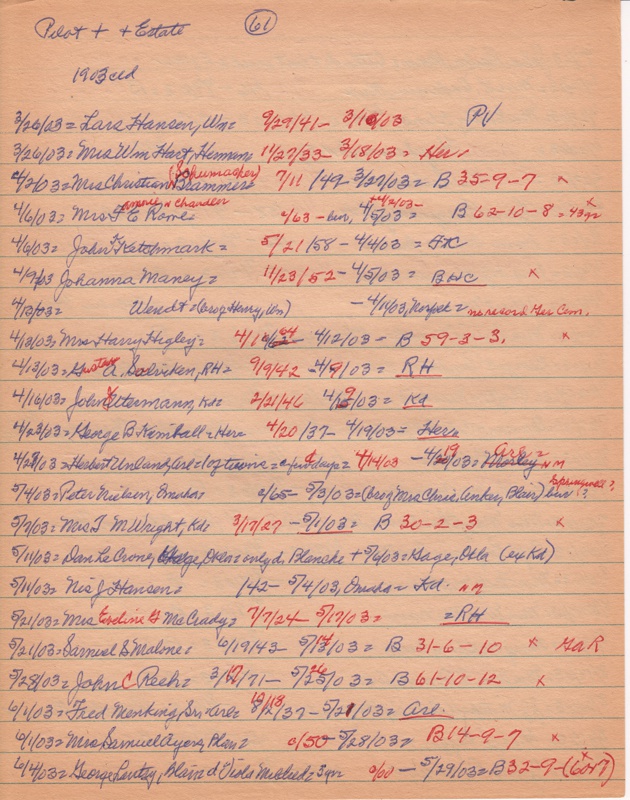 Pilot + + Estate (61)
1903 ctd
3/26/03 = Lars Hansen, Wm = 9/29/41 - 3/1/03 PV
3/26/03 = Mrs Wm Hart, Herman 11/27/33 - 3/18/03 = Her =
4/2/03 = Mrs Christian Brammer = (Schumacher) 7/11/49 - 3/27/03 = B 35-9-7 x
4/6/03 = Mrs F E Rome = Chandler c/63 - bur, 4/5/03 - 4/2/03 - B 62-10-8 = 43yr
4/6/03 = John K Ketchmark = 5/21/58 - 4/4/03 =
4/9/03 Johanna Maney = 11/23/52 - 4/5/03 = BHC x
4/13/03 = Wendt = (bro g Henry, Wm) - 4/11/03, Norfolk = no record Ger Cem.
4/13/03 = Mrs Harry Higley = 4/1/64 4/12/03 - B 59-3-3, x
4/13/03 = Gustav A. RH = 9/9/42 - 4/9/03 = RH
4/16/03 = John Utermann, Kd = 2/21/46 4/9/03 = Kd
4/23/03 = George B Kemball = Her = 4/20/37 - 4/19/03 = Her =
4/28/03 = Herbert Unland, Arl = 1 og twins = c/ days = 4/14/03 - 4/19/03 = Arl = NM
5/4/03 = Peter Nielsen, Omaha = c/65 - 5/3/03 = (bro g Mrs Chris, Anker, Blair) bur Springwell?
5/7/03 = Mrs T M Wright, Kd = 3/17/27 - 5/1/03 = B 30-2-3 x
5/11/03 = Dan Le Crone, Gage, Okla = only d, Blanche + 5/6/03 = Gage, Okla (ex Kd)
5/14/03 = Nis J Hansen = /42 - 5/4/03, Omaha = Kd. NM
5/21/03 = Mrs Eveline G McCrady = 7/7/24 - 5/17/03 = = RH
5/21/03 = Samuel S Malone = 6/19/43 5/14/03 = B 31-6-10 x GaR
5/28/03 = John C Resh = 3/17/71 - 5/26/03 = B 61-10-12 x
6/1/03 = Fred Menking, Sr, Arl = 10/18/37 - 5/21/03 = Arl.
6/1/03 = Mrs Samuel Ayers, Plan = c/50 - 5/28/03 = B 14-9-7 x
6/4/03 = George Lantry, Blair d Viola Mildred = 3yr c/00 - 5/29/03 = B 32-9-(6 or 7) x